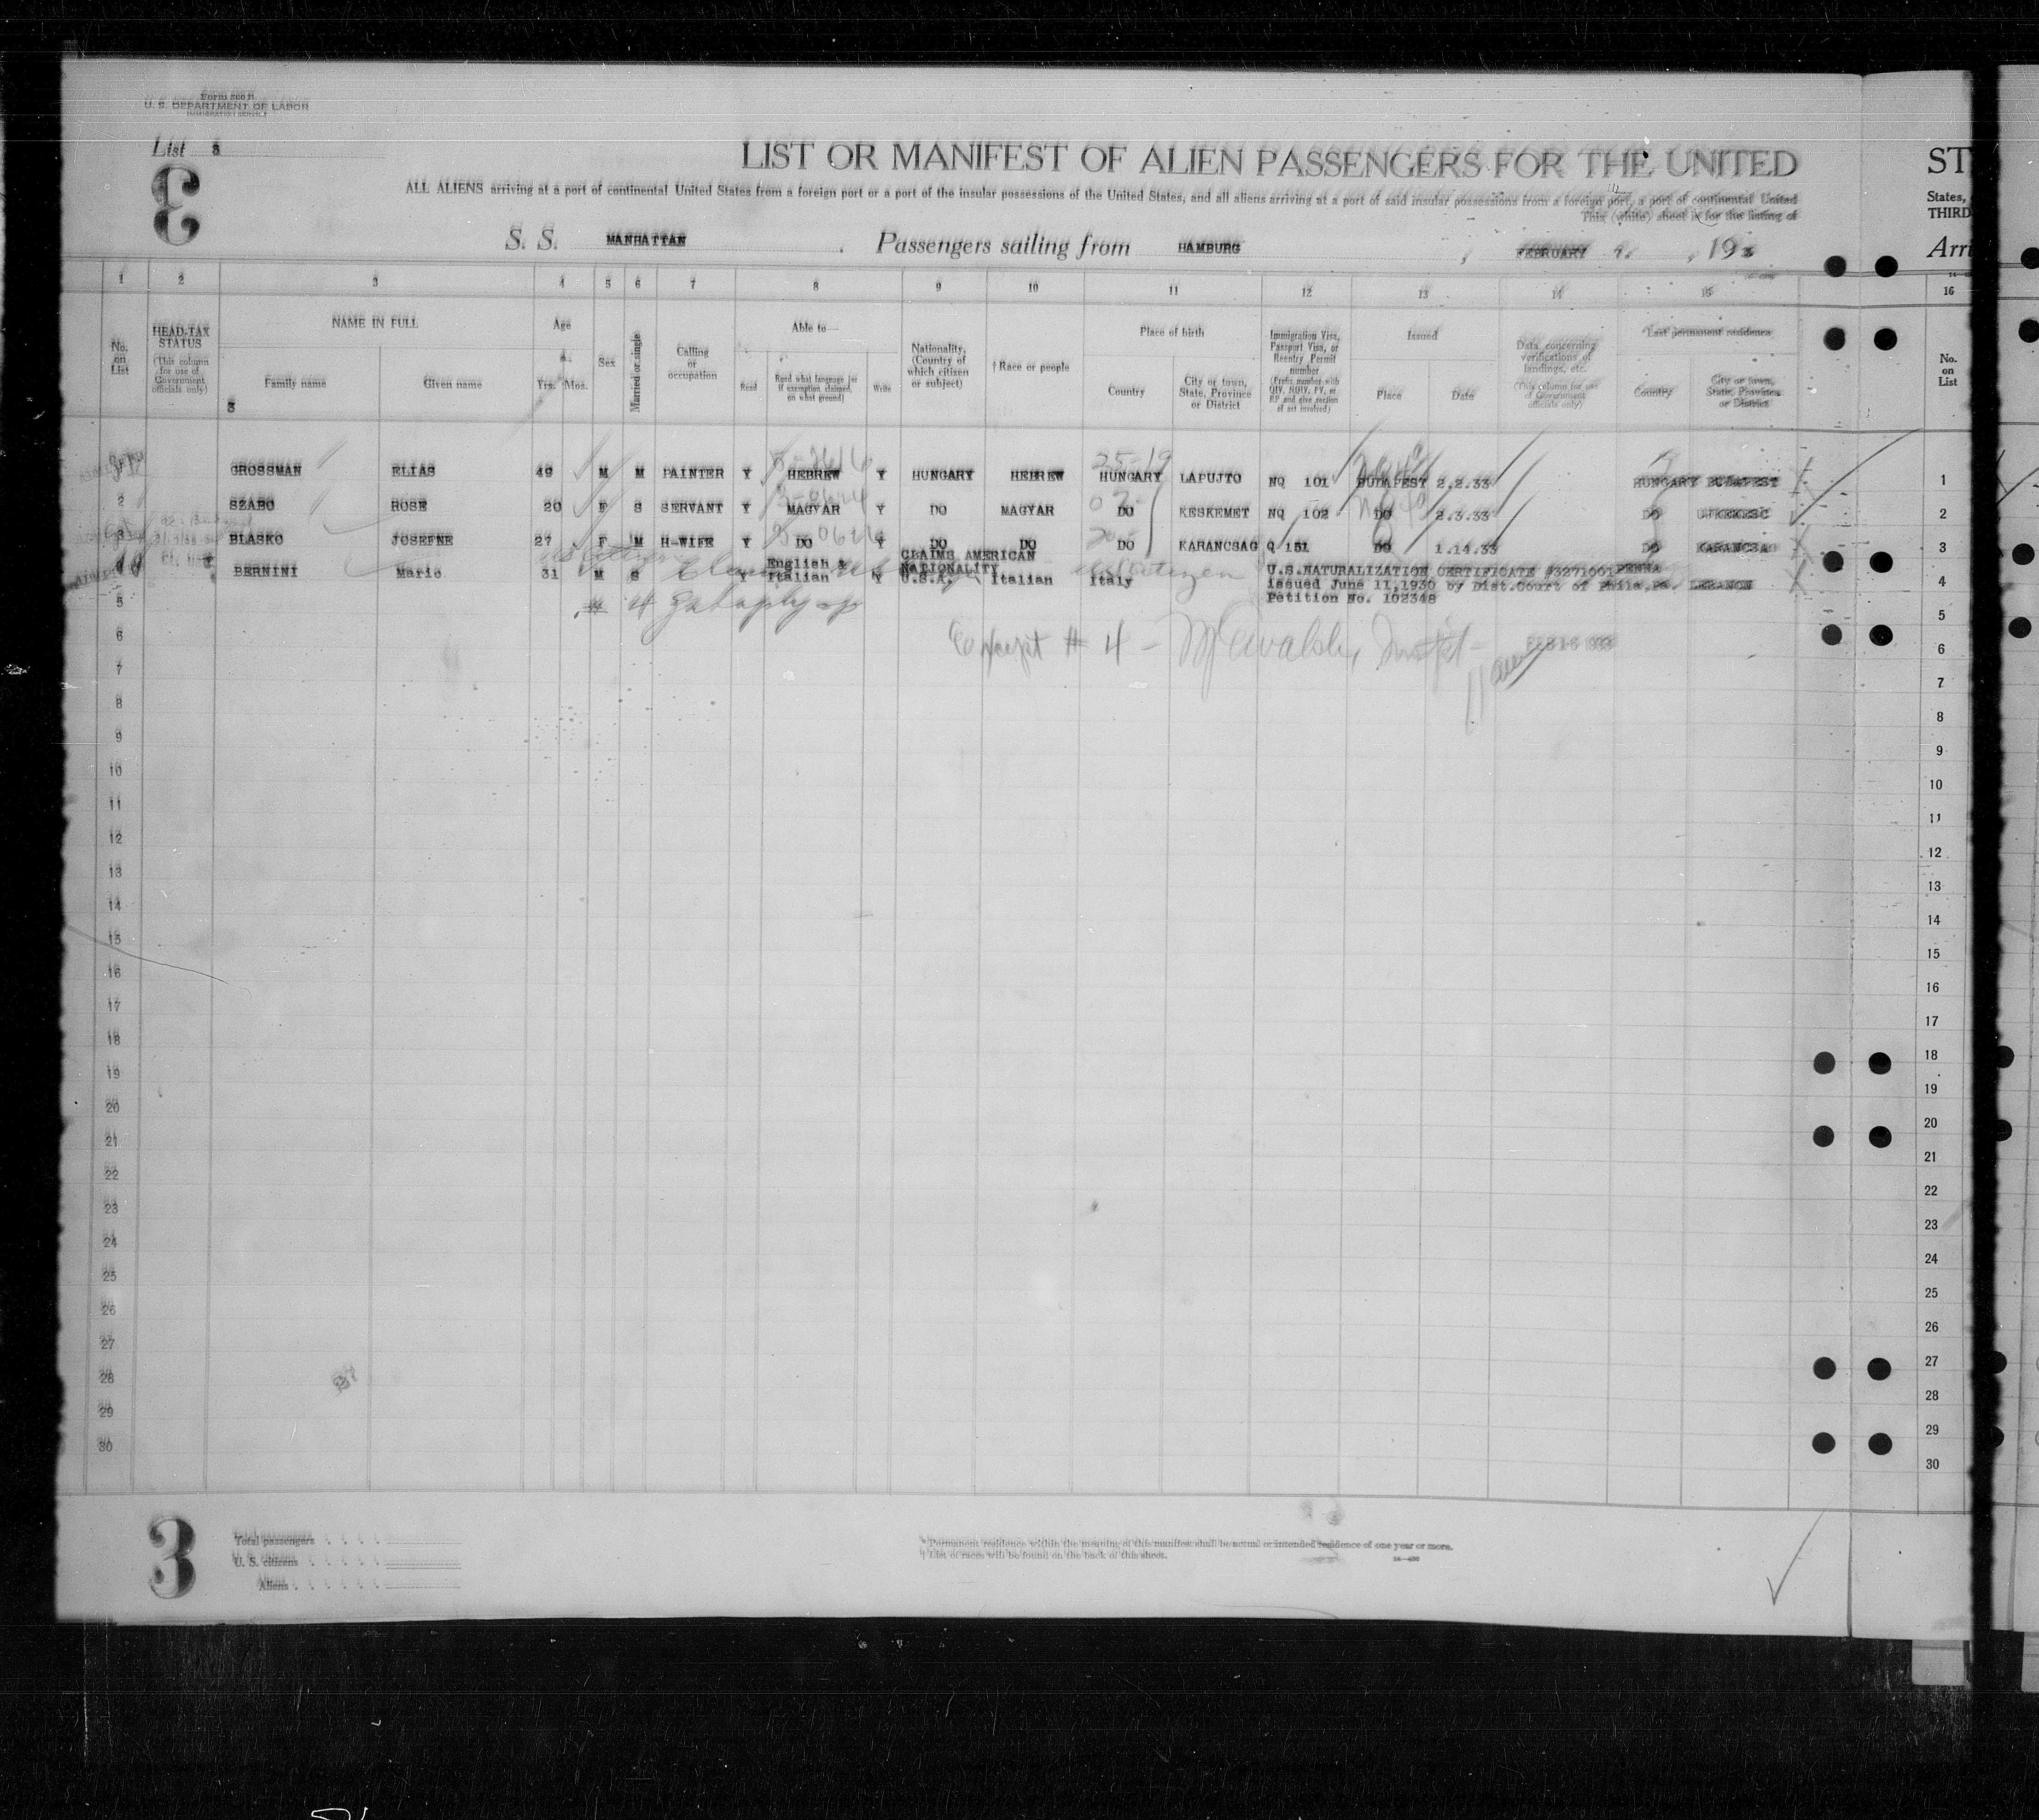 Form 500 B
U. S. DEPARTMENT OF LABOR
IMMIGRATION SERVICE
List 3
3
LIST OR MANIFEST OF ALIEN PASSENGERS FOR THE UNITED ST
ALL ALIENS arriving at a port of continental United States from a foreign port or a port of the insular possessions of the United States, and all aliens arriving at a port of said insular possessions from a foreign port, a port of continental United States,
This (white) sheet is for the listing of THIRD
S. S. MANHATTAN , Passengers sailing from HAMBURG , FEBRUARY , 193 Arri
1 2 3 4 5 6 7 8 9 10 11 12 13 14 15 16
No. on List
HEAD-TAX STATUS (This column for use of Government officials only)
NAME IN FULL
Family name Given name
3
Age
Yrs. Mos.
Sex
Married or single
Calling or occupation
Able to—
Read
Read what language [or if exemption claimed, on what ground]
Write
Nationality. (Country of which citizen or subject)
† Race or people
Place of birth
Country
City or town, State, Province or District
Immigration Visa, Passport Visa, or Reentry Permit number (Prefix number with QIV, NQIV, PV, or RP and give section of act involved)
Issued
Place Date
Data concerning verifications of landings, etc. (This column for use of Government officials only)
Last permanent residence
Country
City or town, State, Province or District
No. on List
GROSSMAN ELIAS 49 M M PAINTER Y HEBREW Y HUNGARY HEBREW HUNGARY LAPUJTO NQ 101 BUDAPEST 2.2.33 HUNGARY BUDAPEST 1
2 SZABO ROSE 20 F S SERVANT Y MAGYAR Y DO MAGYAR DO KESKEMET NQ 102 DO 2.3.33 DO 2
3 BLASKO JOSEFNE 27 F M H-WIFE Y DO Y DO DO DO KARANCSAG Q 151 DO 1.14.33 DO 3
CLAIMS AMERICAN
BERNINI Mario 31 M S Y English & Italian Y NATIONALITY U.S.A. Italian Italy U.S.NATURALIZATION CERTIFICATE #3271601 PENNA
issued June 11,1930 by Dist.Court of Phila,Pa. LEBANON 4
Petition No. 102348
5 5
Except # 4 - FEB 16 1933
6 6
7 7
8 8
9 9
10 10
11 11
12 12
13 13
14 14
15 15
16 16
17 17
18 18
19 19
20 20
21 21
22 22
23 23
24 24
25 25
26 26
27 27
28 28
29 29
30 30
3
Total passengers
U. S. citizens
Aliens
* Permanent residence within the meaning of this manifest shall be actual or intended residence of one year or more.
† List of races will be found on the back of this sheet.